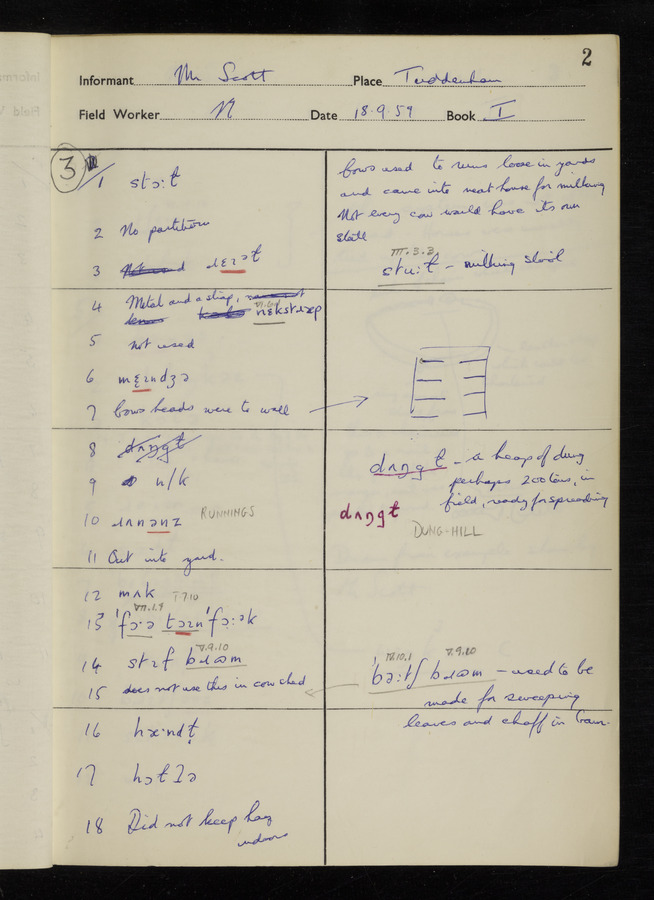 2
Informant Mr Scott Place Tuddenham
Field Worker N Date 18.9.59 Book I
3
1 stɔːɫ
2 No partition
3 ɹɛɪəɫ
4 Metal and a strap,
VI.6.1
nɛkstɹæp
5 not used
6 mɛɪndʒə
7 Cows heads were to wall
8 dʌŋgɫ
9 n/k
10 ɹʌnənz RUNNINGS
11 Out into yard.
12 mʌk I 7.10
VII.1.4
13 ˈfɔːə təɪnˈfɔːək
V.9.10
14 stɪf bɹəm
15 does not use this in cow shed
16 hæˑndɫ
17 hɔtʔə
18 Did not keep hay
indoors
Cows used to run loose in yards
and came into neat house for milking
Not every cow would have its own
stall
III.3.3
stuːɫ – milking stool
dʌŋgɫ – a heap of dung
perhaps 200 tons, in
field, ready for spreading
dʌŋgɫ
DUNG-HILL
IV.10.1 V.9.10
ˈbəːtʃ bɹəm – used to be
made for sweeping
leaves and chaff in barn.